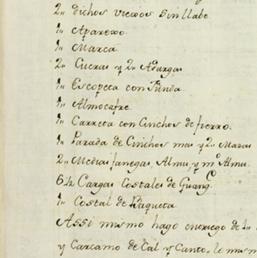 2„ dichos viexos Sin llabe
1„ Aparexo
1„ Marca
2„ Cueras y 2„ Adargas
1„ Escopeta con Funda
1„ Almocafre
1„ Carreta con Cinchos de fierro.
1„ Parada de Cinchos mas y 2„ Mazas
2„ Medias fanegas, Almu y mº Almu.
64 Cargas Costales de Guangᶜ
1„ Costal de Vaqueta
Assi mismo hago entrego de
y Carcamo de Cal y Canto, le